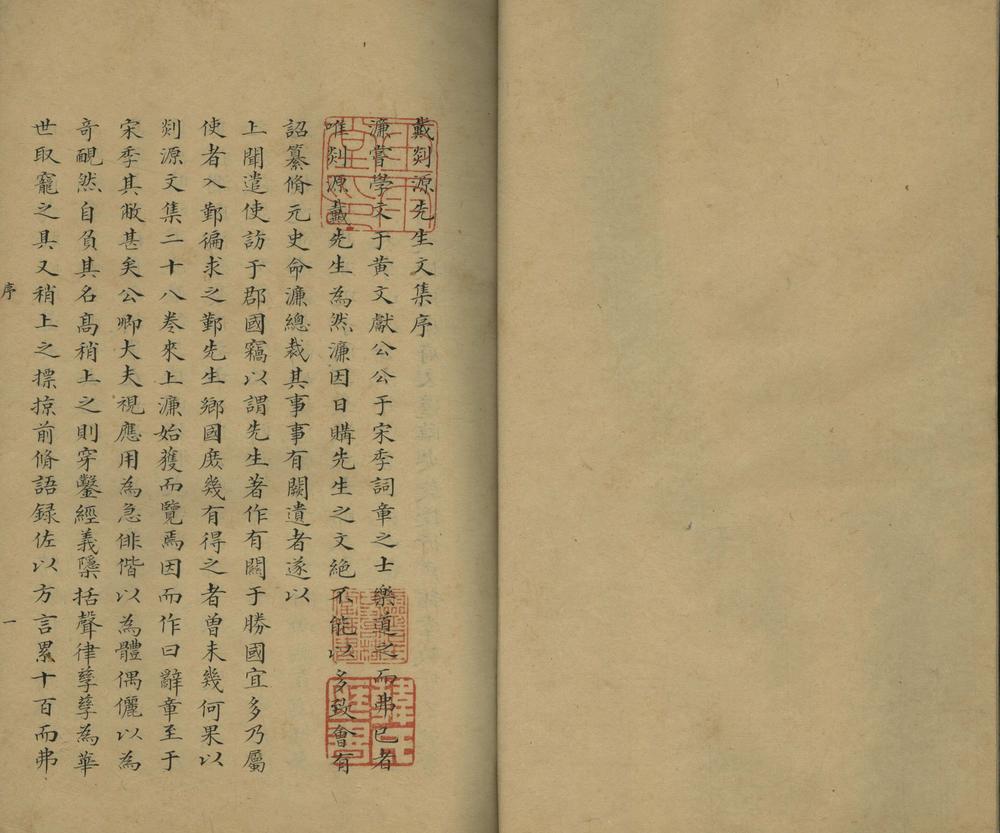 戴剡源先生文集序
濂嘗學文于黄文獻公公于宋季詞章之士樂道之而弗已者
唯剡源戴先生為然濂因日購先生之文絶不能以多致會有
詔纂脩元史命濂總裁其事事有闕遺者遂以
上聞遣使訪于郡國竊以謂先生著作有關于勝國宜多乃屬
使者入鄞徧求之鄞先生鄉國庻幾有得之者曽未幾何果以
剡源文集二十八巻來上濂始獲而覽焉因而作曰辭章至于
宋季其敝甚矣公卿大夫視應用為急俳偕以為體偶儷以為
竒靦然自負其名髙稍上之則穿鑿經義隱括聲律孳孳為華
世取寵之具又稍上之摽掠前脩語録佐以方言累十百而弗
序
一